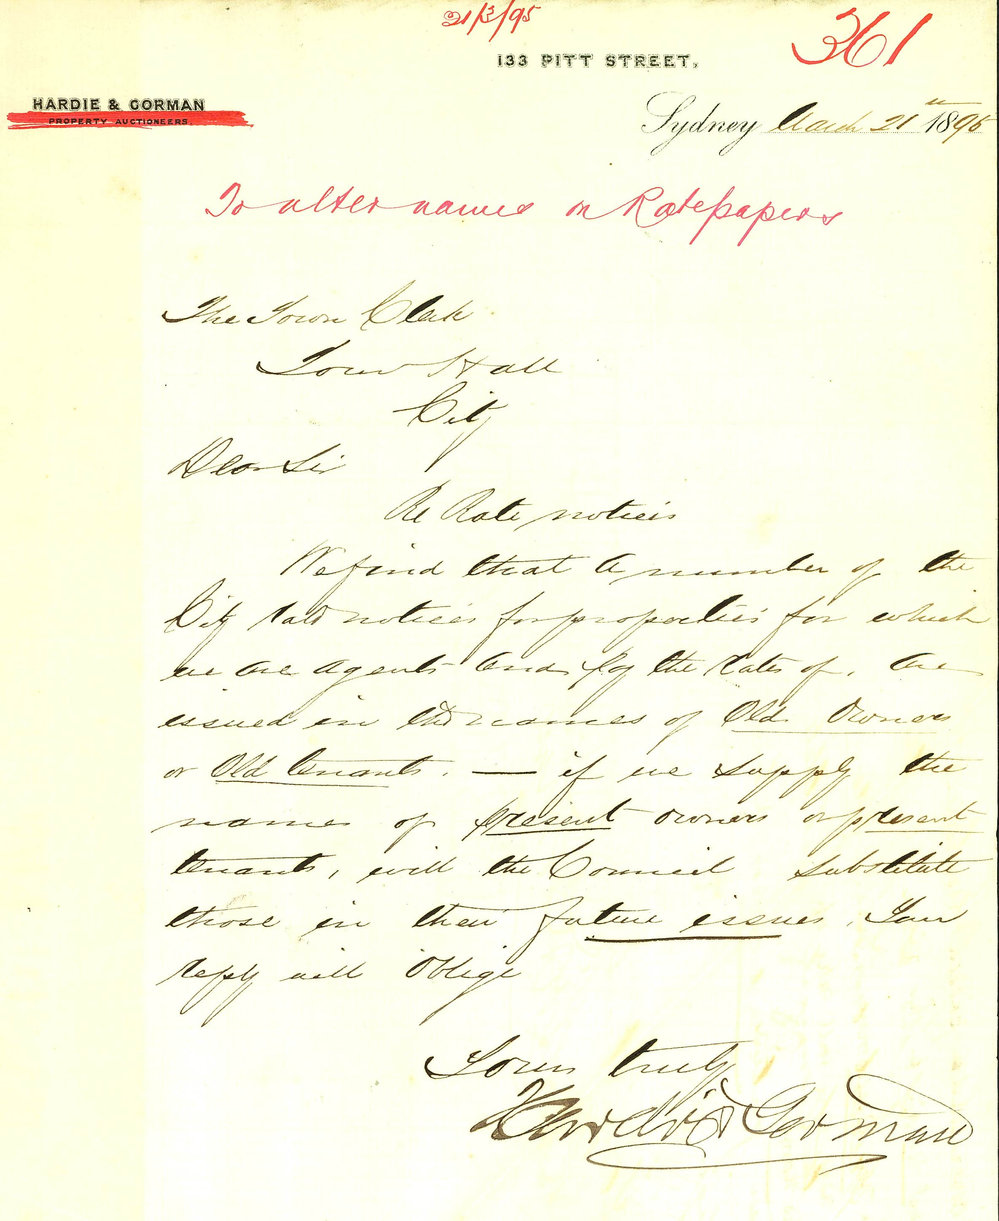 21/3/95
361
133 PITT STREET,
HARDIE & GORMAN
PROPERTY AUCTIONEERS.
Sydney March 21st 1895
To alter names on Ratepapers
The Town Clerk
Town Hall
City
Dear Sir
Re Rate notices
We find that a number of the
City rate notices for properties for which
we are agents and pay the rates of, are
issued in the names of Old Owners
or Old tenants. — if we supply the
names of present owners or present
tenants, will the Council substitute
those in their future issues. Your
reply will oblige
Yours truly
Hardie & Gorman